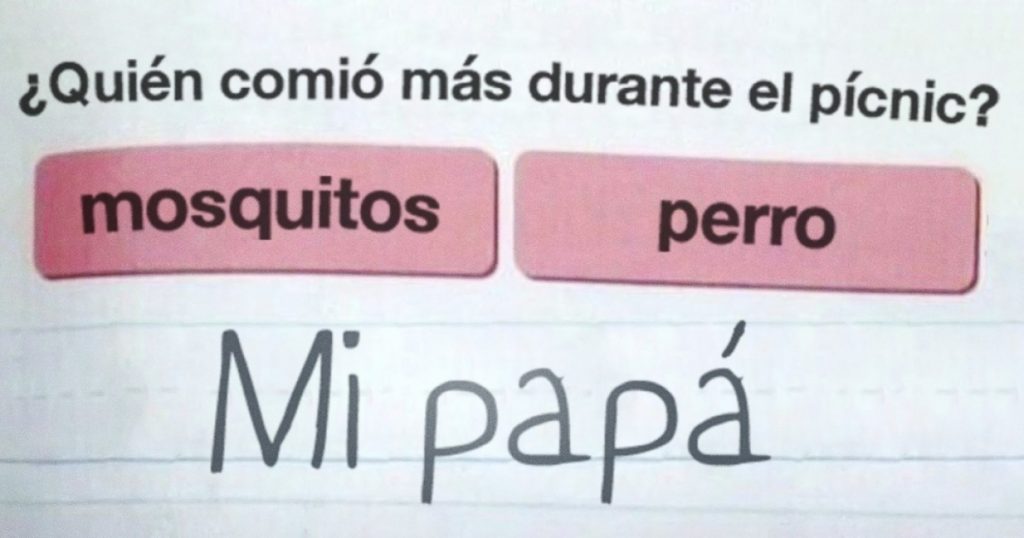 ¿Quién comió más durante el pícnic?
mosquitos perro
Mi papá